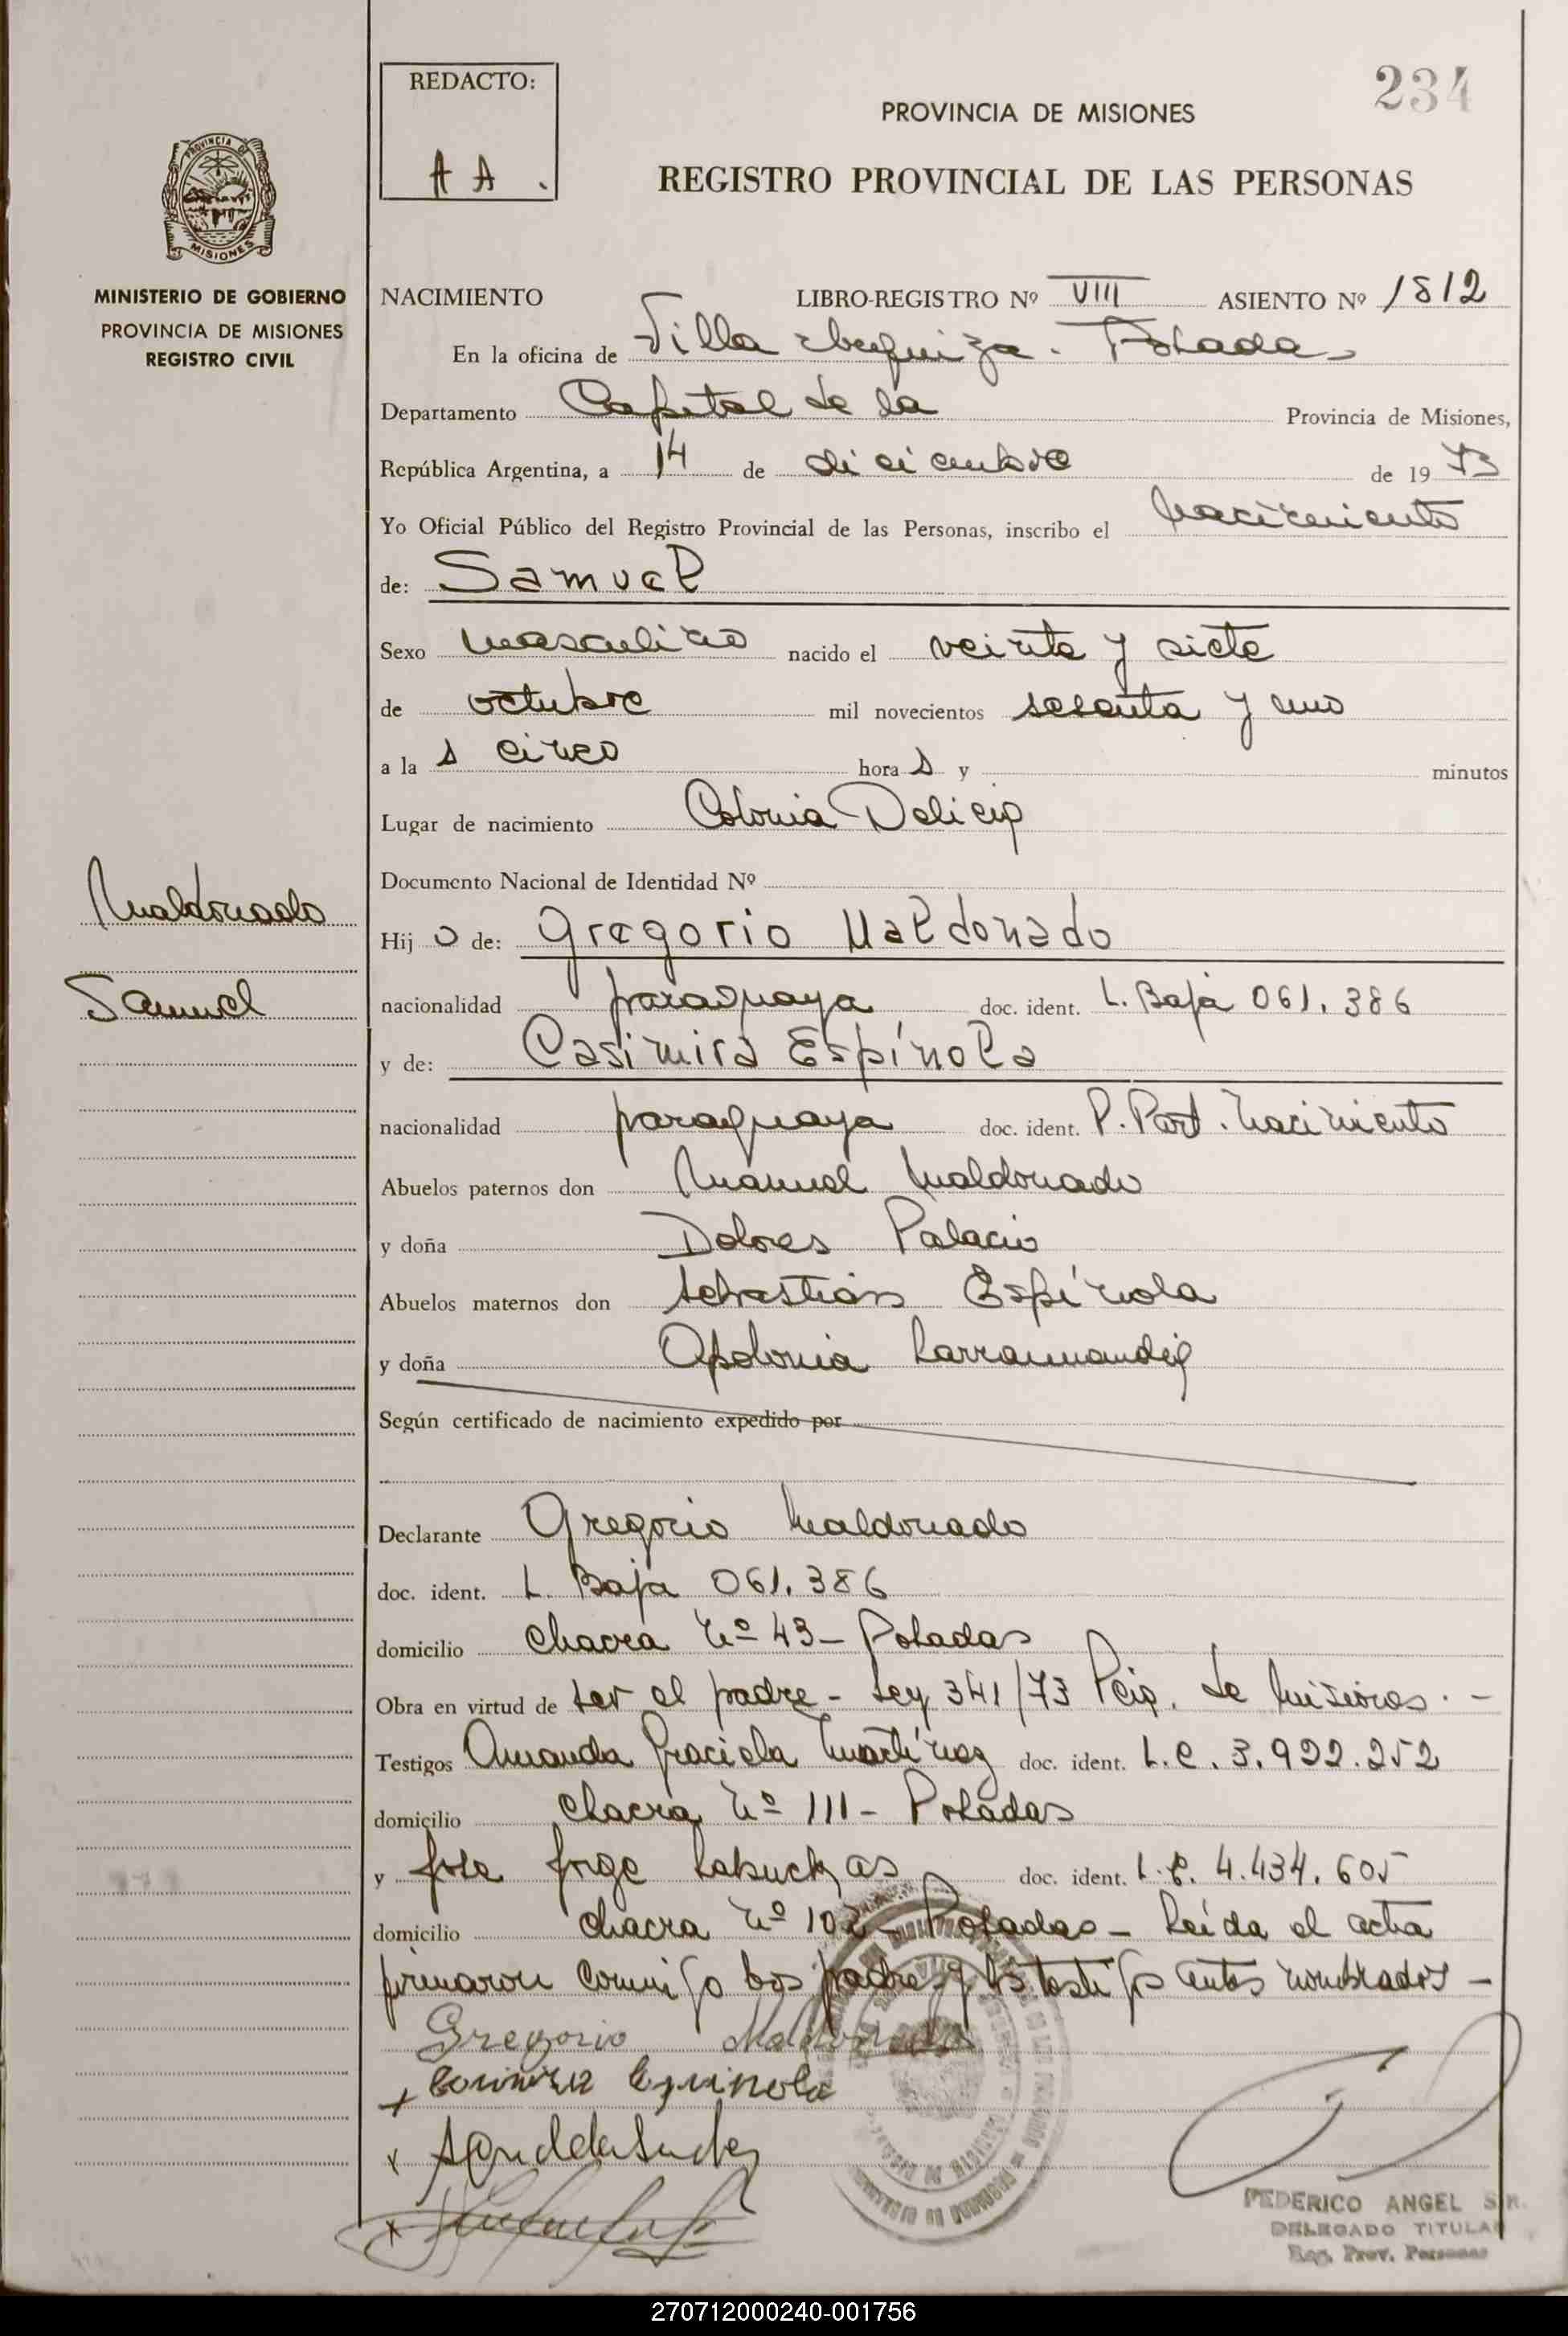 234
REDACTO:
A A .
PROVINCIA DE MISIONES
REGISTRO PROVINCIAL DE LAS PERSONAS
PROVINCIA DE
MISIONES
MINISTERIO DE GOBIERNO
PROVINCIA DE MISIONES
REGISTRO CIVIL
NACIMIENTO LIBRO-REGISTRO Nº VIII ASIENTO Nº 1812
En la oficina de Villa Urquiza. Posadas
Departamento Capital de la Provincia de Misiones,
República Argentina, a 14 de diciembre de 19 73
Yo Oficial Público del Registro Provincial de las Personas, inscribo el nacimiento
de: Samuel
Sexo masculino nacido el veinte y siete
de octubre mil novecientos sesenta y uno
a la s cinco hora s y minutos
Lugar de nacimiento Colonia Delicia
Documento Nacional de Identidad Nº
Maldonado
Samuel
Hij o de: Gregorio Maldonado
nacionalidad paraguaya doc. ident. L. Baja 061.386
y de: Casimira Espínola
nacionalidad paraguaya doc. ident. P. Part. Nacimiento
Abuelos paternos don Manuel Maldonado
y doña Dolores Palacio
Abuelos maternos don Sebastián Espínola
y doña Apolonia
Según certificado de nacimiento expedido por
Declarante Gregorio Maldonado
doc. ident. L. Baja 061.386
domicilio Chacra Nº 43 - Posadas
Obra en virtud de ser el padre - Ley 341/73 Pcia. de Misiones. -
Testigos Amanda Graciela Martínez doc. ident. L.C. 3.922.252
domicilio Chacra Nº 111 - Posadas
y José Jorge doc. ident. L.E. 4.434.605
domicilio chacra Nº 102 - Posadas - Leída el acta
firmaron conmigo los padres y los testigos antes nombrados -
Gregorio Maldonado
Espinola
FEDERICO ANGEL
DELEGADO TITULAR
Reg. Prov. Personas
270712000240-001756